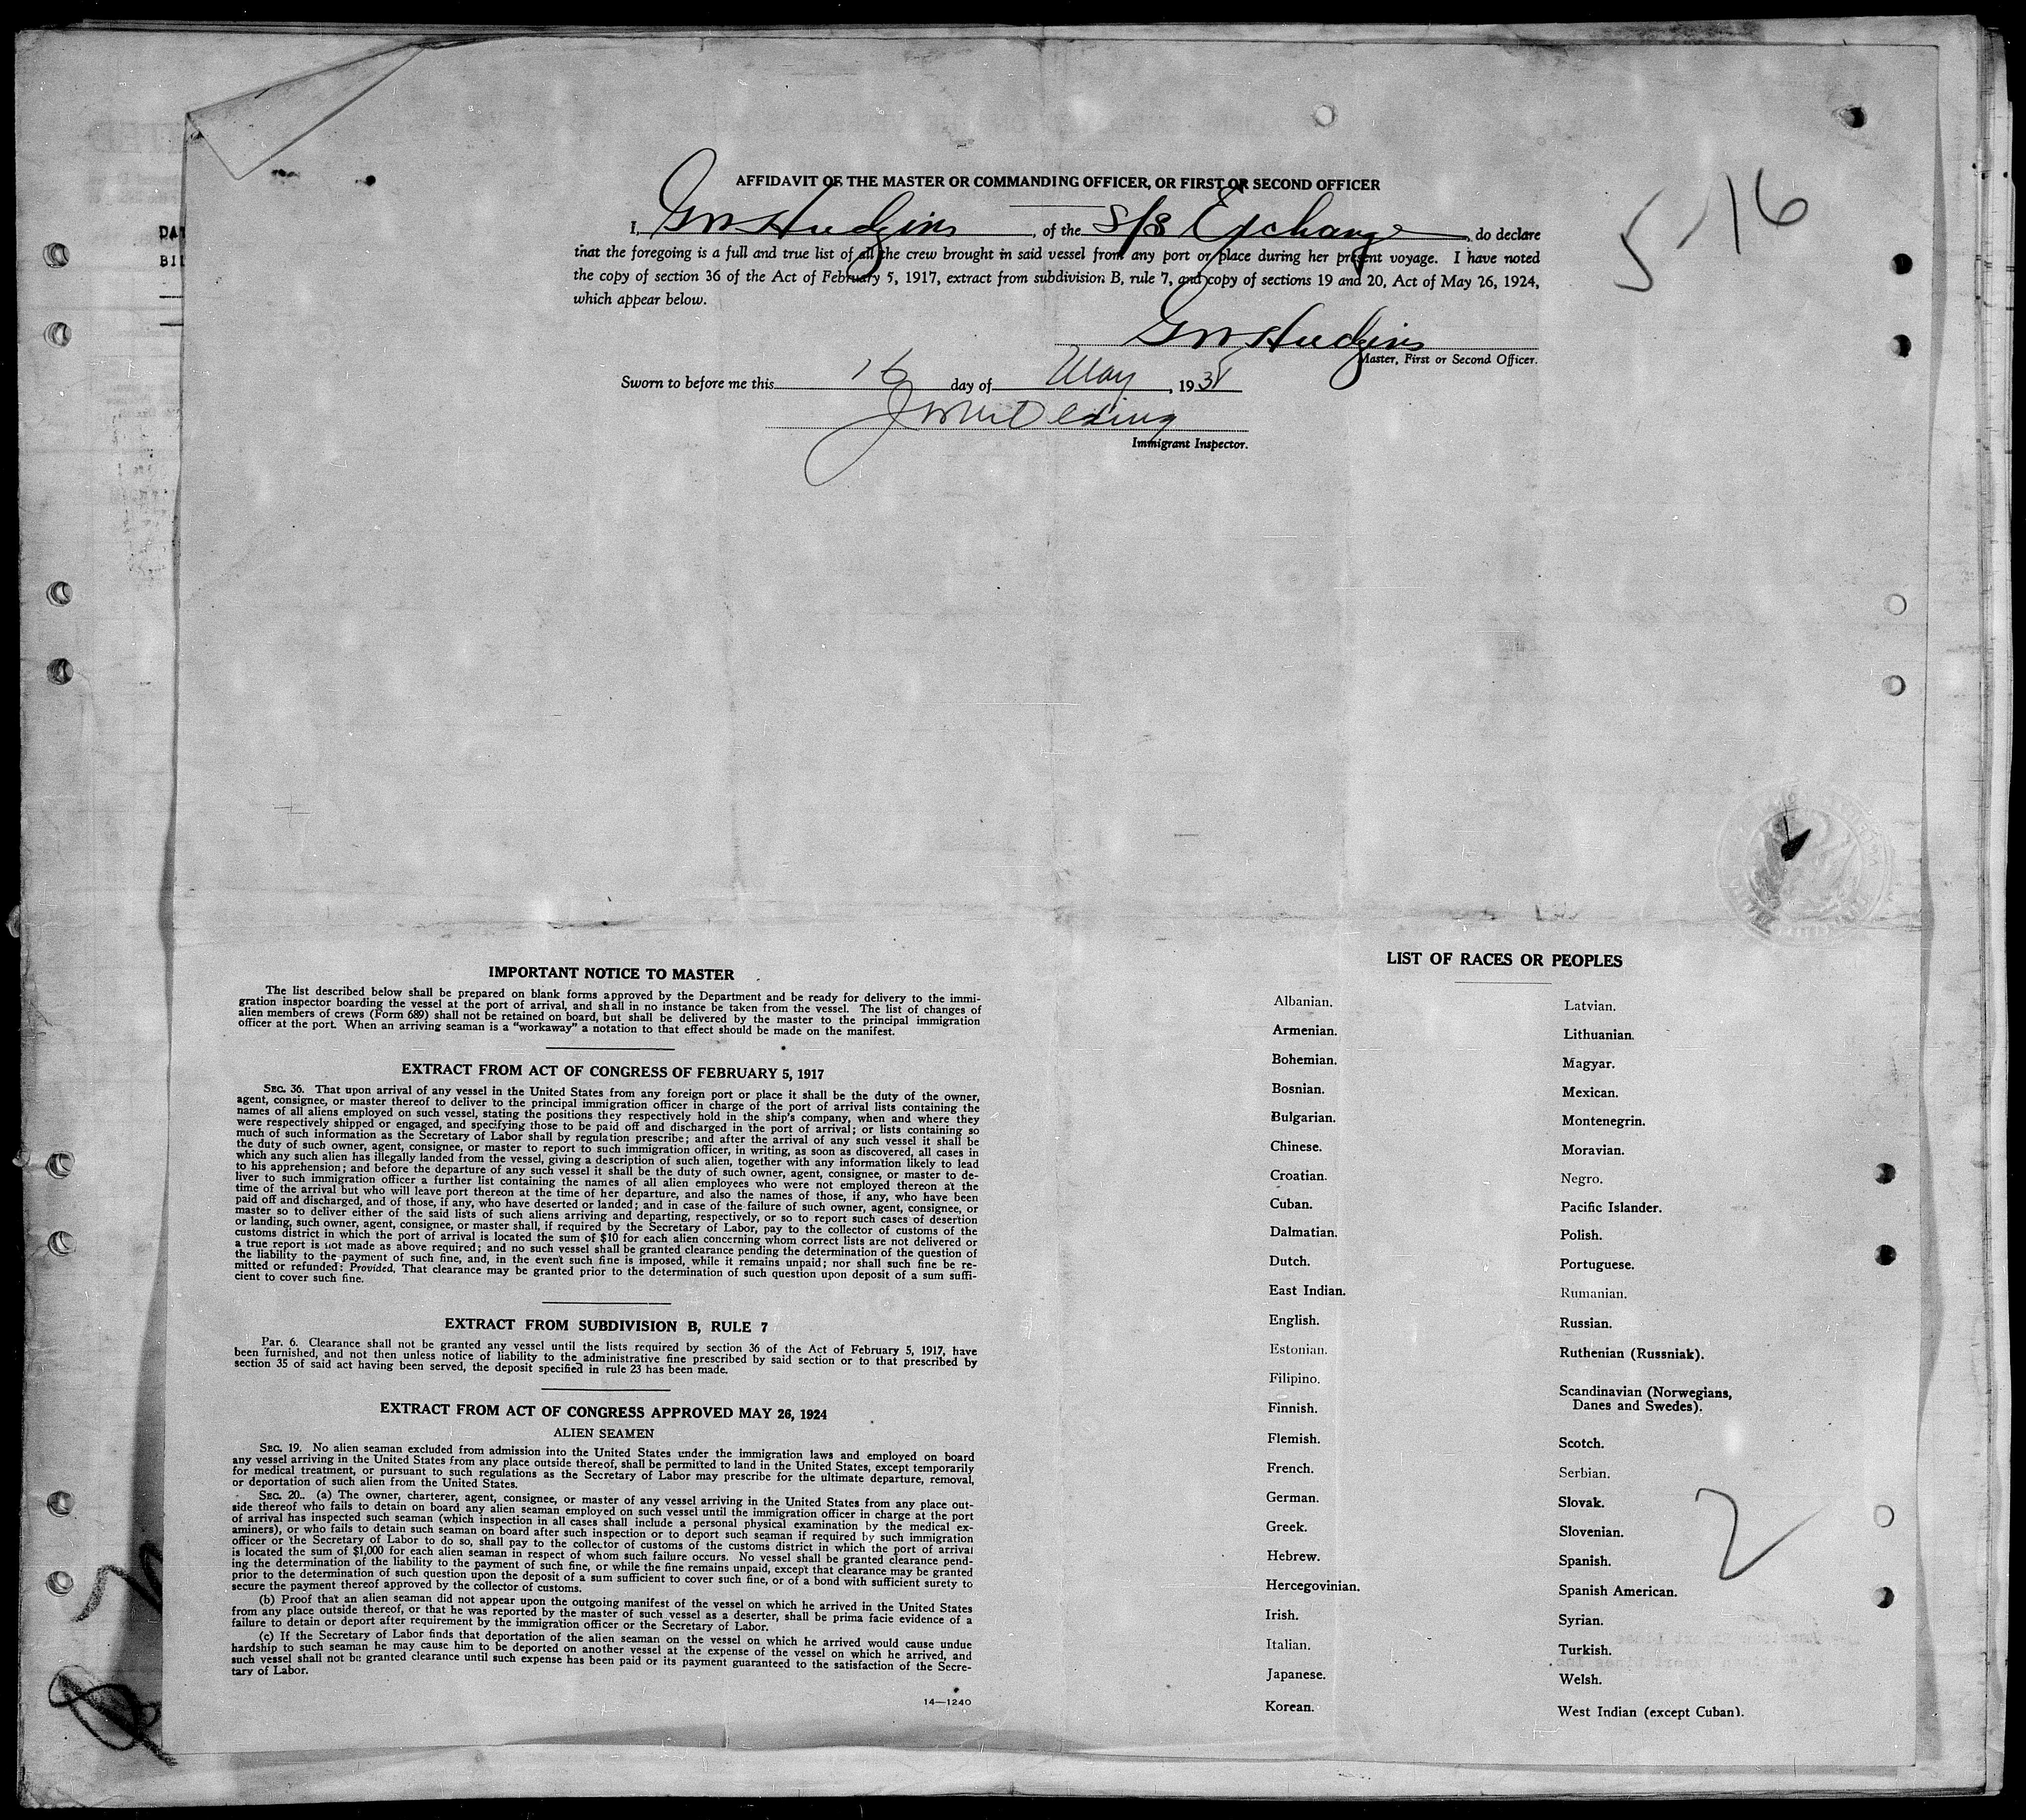 AFFIDAVIT OF THE MASTER OR COMMANDING OFFICER, OR FIRST OR SECOND OFFICER
5-16
I, GW Hudgins, of the S/S Exchange, do declare
that the foregoing is a full and true list of all the crew brought in said vessel from any port or place during her present voyage. I have noted
the copy of section 36 of the Act of February 5, 1917, extract from subdivision B, rule 7, and copy of sections 19 and 20, Act of May 26, 1924,
which appear below.
GW Hudgins
Master, First or Second Officer.
Sworn to before me this 16 day of May, 1938
Immigrant Inspector.
IMPORTANT NOTICE TO MASTER
The list described below shall be prepared on blank forms approved by the Department and be ready for delivery to the immi-
gration inspector boarding the vessel at the port of arrival, and shall in no instance be taken from the vessel. The list of changes of
alien members of crews (Form 689) shall not be retained on board, but shall be delivered by the master to the principal immigration
officer at the port. When an arriving seaman is a "workaway" a notation to that effect should be made on the manifest.
EXTRACT FROM ACT OF CONGRESS OF FEBRUARY 5, 1917
SEC. 36. That upon arrival of any vessel in the United States from any foreign port or place it shall be the duty of the owner,
agent, consignee, or master thereof to deliver to the principal immigration officer in charge of the port of arrival lists containing the
names of all aliens employed on such vessel, stating the positions they respectively hold in the ship's company, when and where they
were respectively shipped or engaged, and specifying those to be paid off and discharged in the port of arrival; or lists containing so
much of such information as the Secretary of Labor shall by regulation prescribe; and after the arrival of any such vessel it shall be
the duty of such owner, agent, consignee, or master to report to such immigration officer, in writing, as soon as discovered, all cases in
which any such alien has illegally landed from the vessel, giving a description of such alien, together with any information likely to lead
to his apprehension; and before the departure of any such vessel it shall be the duty of such owner, agent, consignee, or master to de-
liver to such immigration officer a further list containing the names of all alien employees who were not employed thereon at the
time of the arrival but who will leave port thereon at the time of her departure, and also the names of those, if any, who have been
paid off and discharged, and of those, if any, who have deserted or landed; and in case of the failure of such owner, agent, consignee, or
master so to deliver either of the said lists of such aliens arriving and departing, respectively, or so to report such cases of desertion
or landing, such owner, agent, consignee, or master shall, if required by the Secretary of Labor, pay to the collector of customs of the
customs district in which the port of arrival is located the sum of $10 for each alien concerning whom correct lists are not delivered or
a true report is not made as above required; and no such vessel shall be granted clearance pending the determination of the question of
the liability to the payment of such fine, and, in the event such fine is imposed, while it remains unpaid; nor shall such fine be re-
mitted or refunded: Provided, That clearance may be granted prior to the determination of such question upon deposit of a sum suffi-
cient to cover such fine.
EXTRACT FROM SUBDIVISION B, RULE 7
Par. 6. Clearance shall not be granted any vessel until the lists required by section 36 of the Act of February 5, 1917, have
been furnished, and not then unless notice of liability to the administrative fine prescribed by said section or to that prescribed by
section 35 of said act having been served, the deposit specified in rule 23 has been made.
EXTRACT FROM ACT OF CONGRESS APPROVED MAY 26, 1924
ALIEN SEAMEN
SEC. 19. No alien seaman excluded from admission into the United States under the immigration laws and employed on board
any vessel arriving in the United States from any place outside thereof, shall be permitted to land in the United States, except temporarily
for medical treatment, or pursuant to such regulations as the Secretary of Labor may prescribe for the ultimate departure, removal,
or deportation of such alien from the United States.
SEC. 20. (a) The owner, charterer, agent, consignee, or master of any vessel arriving in the United States from any place out-
side thereof who fails to detain on board any alien seaman employed on such vessel until the immigration officer in charge at the port
of arrival has inspected such seaman (which inspection in all cases shall include a personal physical examination by the medical ex-
aminers), or who fails to detain such seaman on board after such inspection or to deport such seaman if required by such immigration
officer or the Secretary of Labor to do so, shall pay to the collector of customs of the customs district in which the port of arrival
is located the sum of $1,000 for each alien seaman in respect of whom such failure occurs. No vessel shall be granted clearance pend-
ing the determination of the liability to the payment of such fine, or while the fine remains unpaid, except that clearance may be granted
prior to the determination of such question upon the deposit of a sum sufficient to cover such fine, or of a bond with sufficient surety to
secure the payment thereof approved by the collector of customs.
(b) Proof that an alien seaman did not appear upon the outgoing manifest of the vessel on which he arrived in the United States
from any place outside thereof, or that he was reported by the master of such vessel as a deserter, shall be prima facie evidence of a
failure to detain or deport after requirement by the immigration officer or the Secretary of Labor.
(c) If the Secretary of Labor finds that deportation of the alien seaman on the vessel on which he arrived would cause undue
hardship to such seaman he may cause him to be deported on another vessel at the expense of the vessel on which he arrived, and
such vessel shall not be granted clearance until such expense has been paid or its payment guaranteed to the satisfaction of the Secre-
tary of Labor.
14—1240
LIST OF RACES OR PEOPLES
Albanian.
Armenian.
Bohemian.
Bosnian.
Bulgarian.
Chinese.
Croatian.
Cuban.
Dalmatian.
Dutch.
East Indian.
English.
Estonian.
Filipino.
Finnish.
Flemish.
French.
German.
Greek.
Hebrew.
Hercegovinian.
Irish.
Italian.
Japanese.
Korean.
Latvian.
Lithuanian.
Magyar.
Mexican.
Montenegrin.
Moravian.
Negro.
Pacific Islander.
Polish.
Portuguese.
Rumanian.
Russian.
Ruthenian (Russniak).
Scandinavian (Norwegians,
Danes and Swedes).
Scotch.
Serbian.
Slovak.
Slovenian.
Spanish.
Spanish American.
Syrian.
Turkish.
Welsh.
West Indian (except Cuban).
2